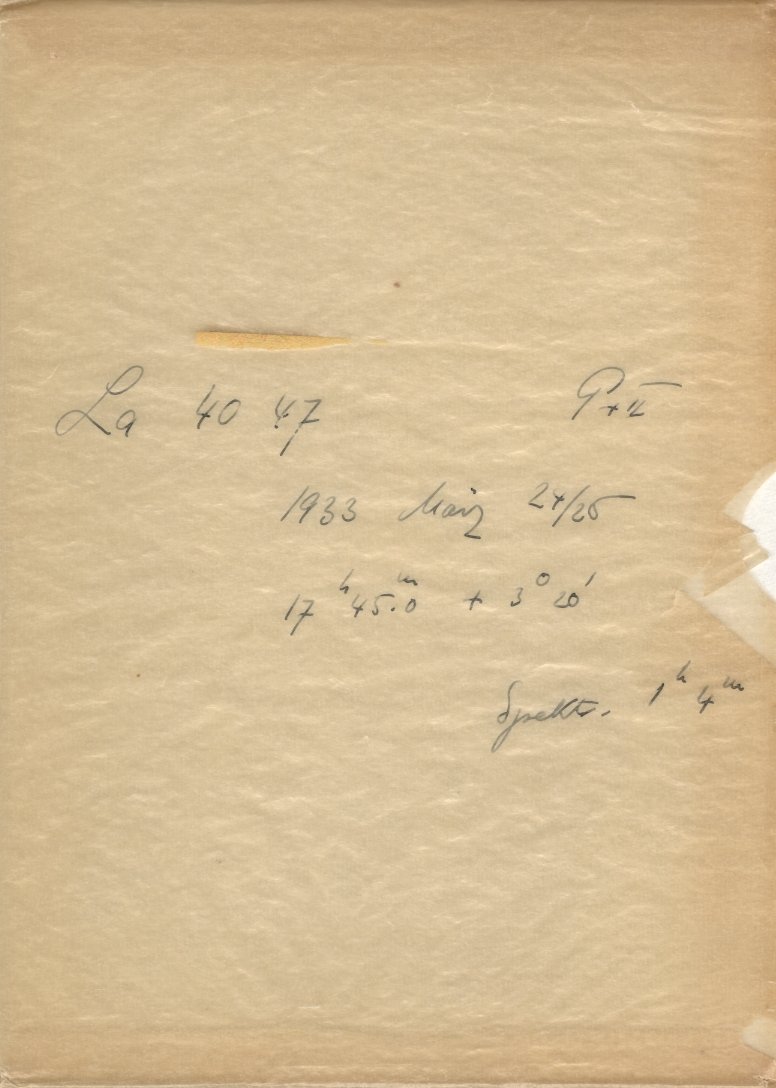 La 40 47
1933 März 24/25
17ʰ 45.0ᵐ + 3° 20'
Spektr. 1ʰ 4ᵐ